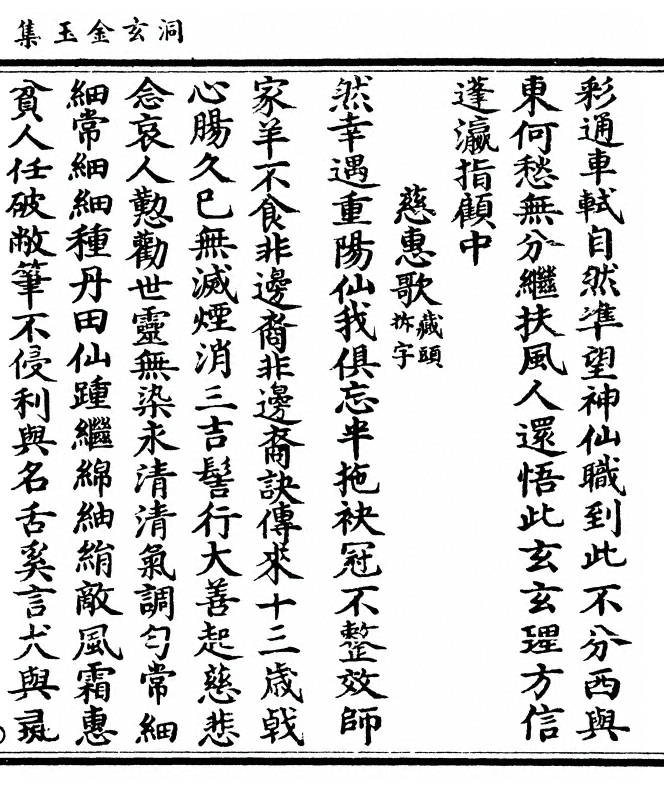 洞玄金玉集
彩通車軾自然準望神仙職到此不分西與
東何愁無分繼扶風人還悟此玄玄理方信
蓬瀛指顧中
慈惠歌藏頭拆字
然幸遇重陽仙我俱忘半拖袂冠不整效師
家羊不食非邊裔非邊裔訣傳來十三歲戟
心腸久已無滅煙消三吉髻行大善起慈悲
念哀人懃勸世靈無染永清清氣調勻常細
細常細細種丹田仙踵繼綿紬絹敵風霜惠
貧人任破敝筆不侵利與名舌奚言尤與